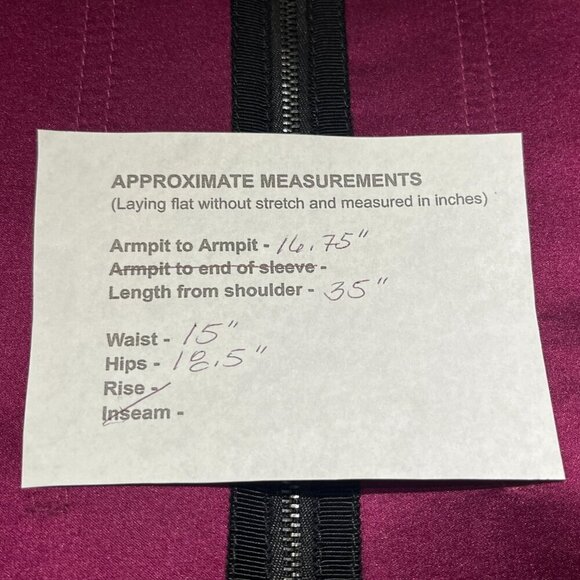 APPROXIMATE MEASUREMENTS
(Laying flat without stretch and measured in inches)
Armpit to Armpit - 16.75"
Armpit to end of sleeve -
Length from shoulder - 35"
Waist - 15"
Hips - 18.5"
Rise -
Inseam -